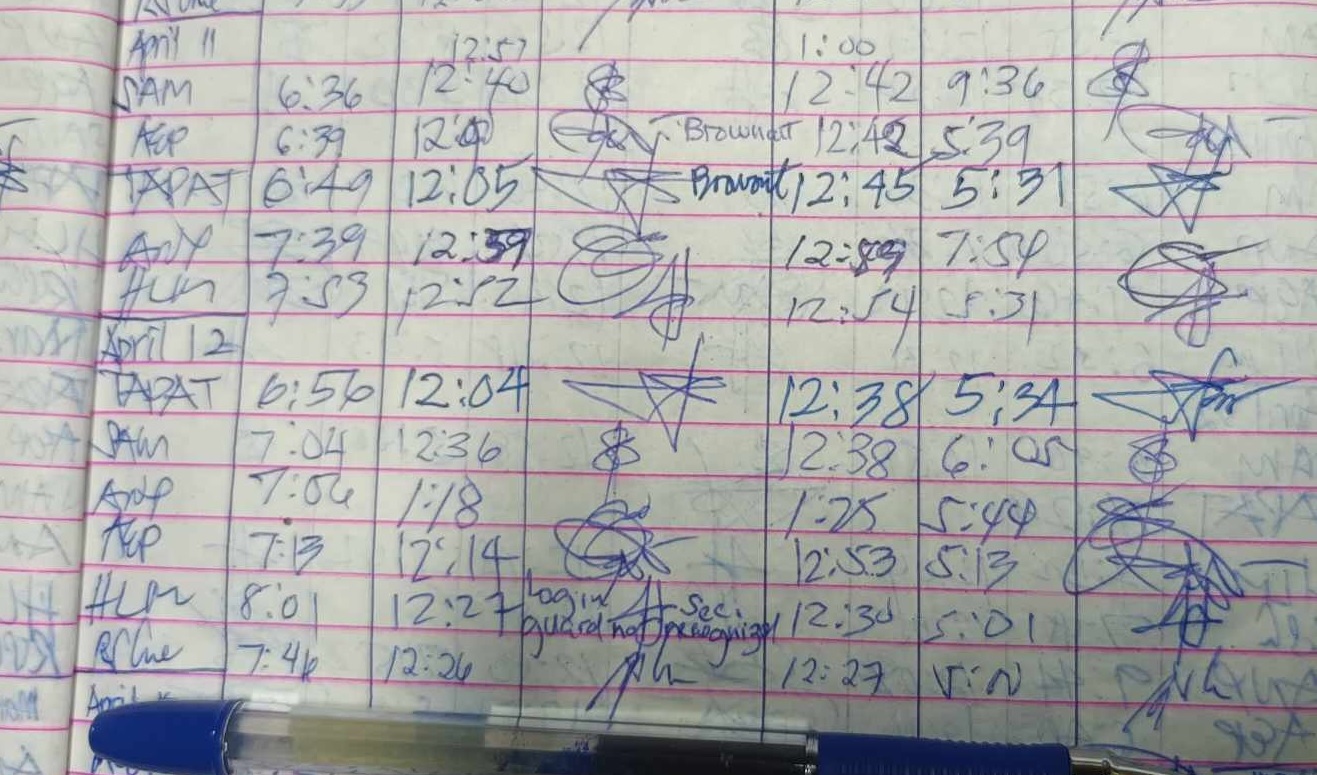 April 11 12:57 1:00
SAM 6:36 12:40 12:42 9:36
AEP 6:39 Brownout 12:42 5:39
TAPAT 6:49 12:05 12:45 5:31
7:39 12:39 7:54
HLM 7:53 12:52 12:54 5:31
April 12
TAPAT 6:56 12:04 12:38 5:34
SAM 7:04 12:36 12:38 6:05
7:06 1:18 1:25 5:44
AEP 7:13 12:14 12:53 5:13
HLM 8:01 12:27 Login Sec. guard not recognized 12:30 5:01
7:46 12:26 12:27
April